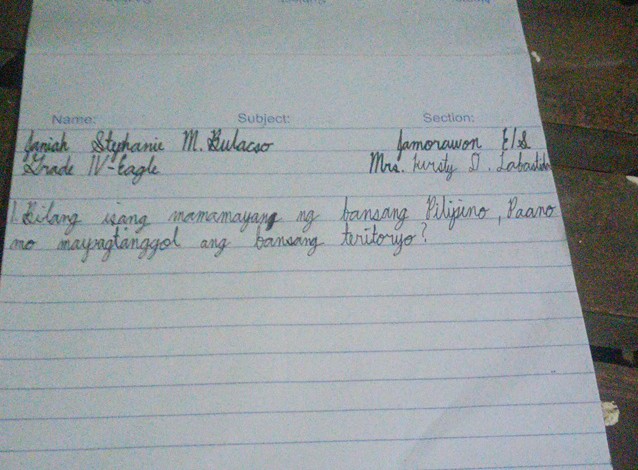 Name: Subject: Section:
Janiah Stephanie M. Bulacso Jamorawon E/S
Grade IV-Eagle Mrs. D. Labastida
1. Bilang isang mamamayang ng bansang Pilipino, Paano
mo maypagtanggol ang bansang teritoryo?